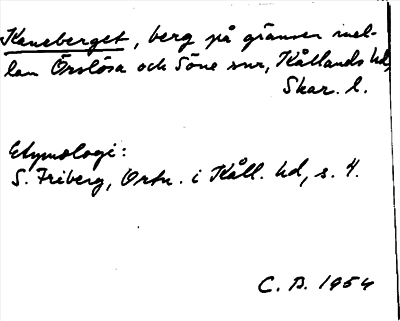 Kaneberget, berg på gränsen mel-
lan Örslösa och Söne snr, Kållands hd,
Skar. l.
Etymologi:
S. Friberg, Ortn. i Kåll. hd, s. 4.
C. B. 1954